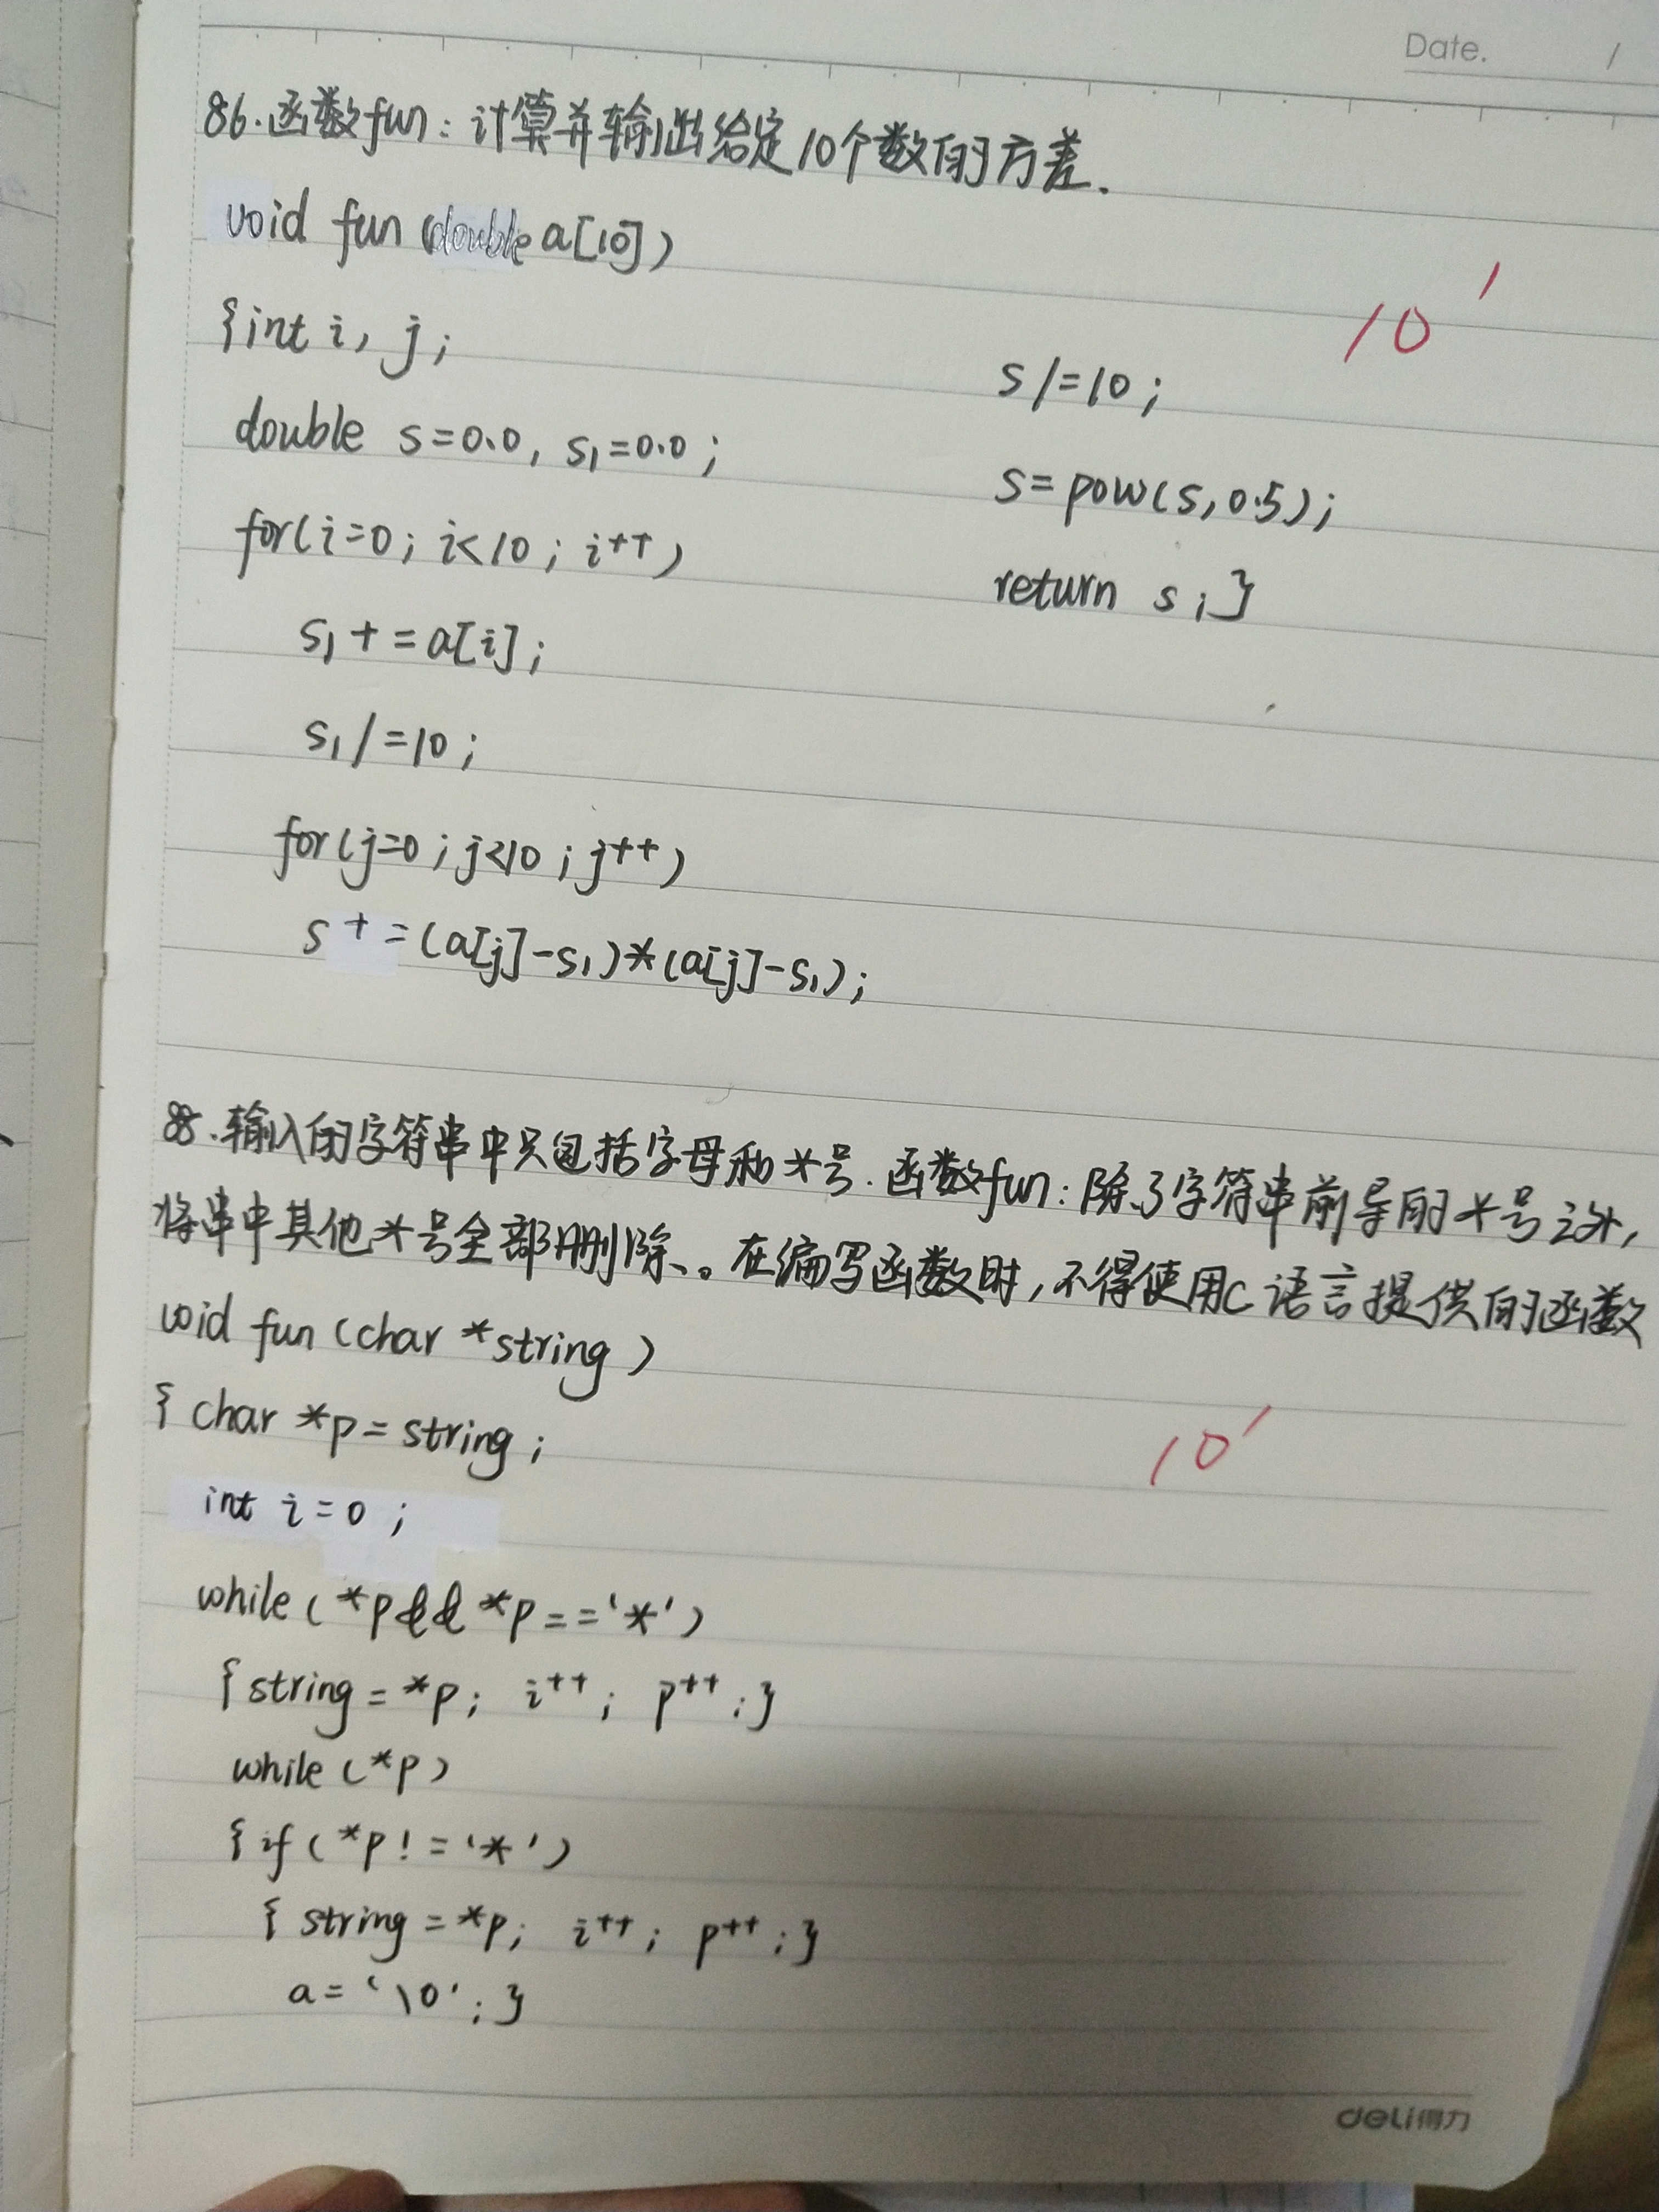 Date. /
86.函数fun:计算并输出给定10个数的方差.
void fun (double a[10])
{int i, j;
double s=0.0, s1=0.0;
for(i=0; i<10; i++)
s1 += a[i];
s1 /=10;
for(j=0; j<10; j++)
s += (a[j]-s1)*(a[j]-s1);
10'
s /=10;
s=pow(s,0.5);
return s;}
88.输入的字符串中只包括字母和*号.函数fun:除了字符串前导的*号之外,
将串中其他*号全部删除、。在编写函数时,不得使用C语言提供的函数
void fun (char *string)
{ char *p = string;
10'
int i=0;
while (*p&&*p=='*')
{string=*p; i++; p++;}
while (*p)
{if (*p!='*')
{ string=*p; i++; p++;}
a='\0';}
deli得力